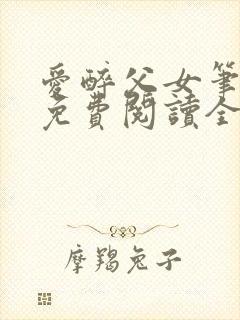 愛醉父女筆
免費閱讀全
摩羯兔子